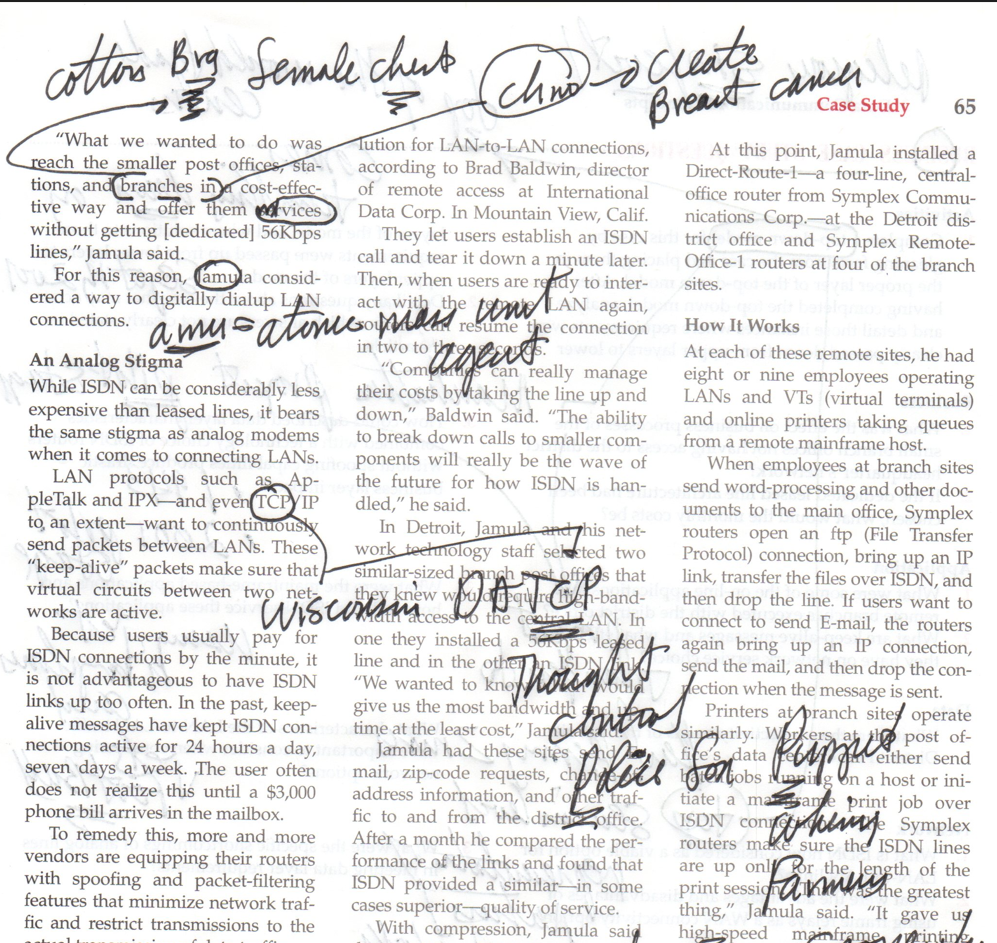 cotton Bra female chest chino → create
Breast cancer
Case Study 65
"What we wanted to do was
reach the smaller post offices, sta-
tions, and branches in a cost-effec-
tive way and offer them services
without getting [dedicated] 56Kbps
lines," Jamula said.
For this reason, Jamula consid-
ered a way to digitally dialup LAN
connections.
amu = atomic mass unit
agent
An Analog Stigma
While ISDN can be considerably less
expensive than leased lines, it bears
the same stigma as analog modems
when it comes to connecting LANs.
LAN protocols such as Ap-
pleTalk and IPX—and even TCP/IP
to an extent—want to continuously
send packets between LANs. These
"keep-alive" packets make sure that
virtual circuits between two net-
works are active.
Because users usually pay for
ISDN connections by the minute, it
is not advantageous to have ISDN
links up too often. In the past, keep-
alive messages have kept ISDN con-
nections active for 24 hours a day,
seven days a week. The user often
does not realize this until a $3,000
phone bill arrives in the mailbox.
To remedy this, more and more
vendors are equipping their routers
with spoofing and packet-filtering
features that minimize network traf-
fic and restrict transmissions to the
lution for LAN-to-LAN connections,
according to Brad Baldwin, director
of remote access at International
Data Corp. In Mountain View, Calif.
They let users establish an ISDN
call and tear it down a minute later.
Then, when users are ready to inter-
act with the remote LAN again,
routers can resume the connection
in two to three seconds.
"Companies can really manage
their costs by taking the line up and
down," Baldwin said. "The ability
to break down calls to smaller com-
ponents will really be the wave of
the future for how ISDN is han-
dled," he said.
In Detroit, Jamula and his net-
work technology staff selected two
similar-sized branch post offices that
they knew would require high-band-
width access to the central LAN. In
one they installed a 56Kbps leased
line and in the other an ISDN link.
"We wanted to know what would
give us the most bandwidth and up-
time at the least cost," Jamula said.
Jamula had these sites send
mail, zip-code requests, change-of-
address information, and other traf-
fic to and from the district office.
After a month he compared the per-
formance of the links and found that
ISDN provided a similar—in some
cases superior—quality of service.
With compression, Jamula said
Wisconsin DATCP
Thought
Control
Police for
At this point, Jamula installed a
Direct-Route-1—a four-line, central-
office router from Symplex Commu-
nications Corp.—at the Detroit dis-
trict office and Symplex Remote-
Office-1 routers at four of the branch
sites.
How It Works
At each of these remote sites, he had
eight or nine employees operating
LANs and VTs (virtual terminals)
and online printers taking queues
from a remote mainframe host.
When employees at branch sites
send word-processing and other doc-
uments to the main office, Symplex
routers open an ftp (File Transfer
Protocol) connection, bring up an IP
link, transfer the files over ISDN, and
then drop the line. If users want to
connect to send E-mail, the routers
again bring up an IP connection,
send the mail, and then drop the con-
nection when the message is sent.
Printers at branch sites operate
similarly. Workers at the post of-
fice's data center can either send
batch jobs running on a host or ini-
tiate a mainframe print job over
ISDN connections. The Symplex
routers make sure the ISDN lines
are up only for the length of the
print session. was the greatest
thing," Jamula said. "It gave us
high-speed mainframe printing
Farmers